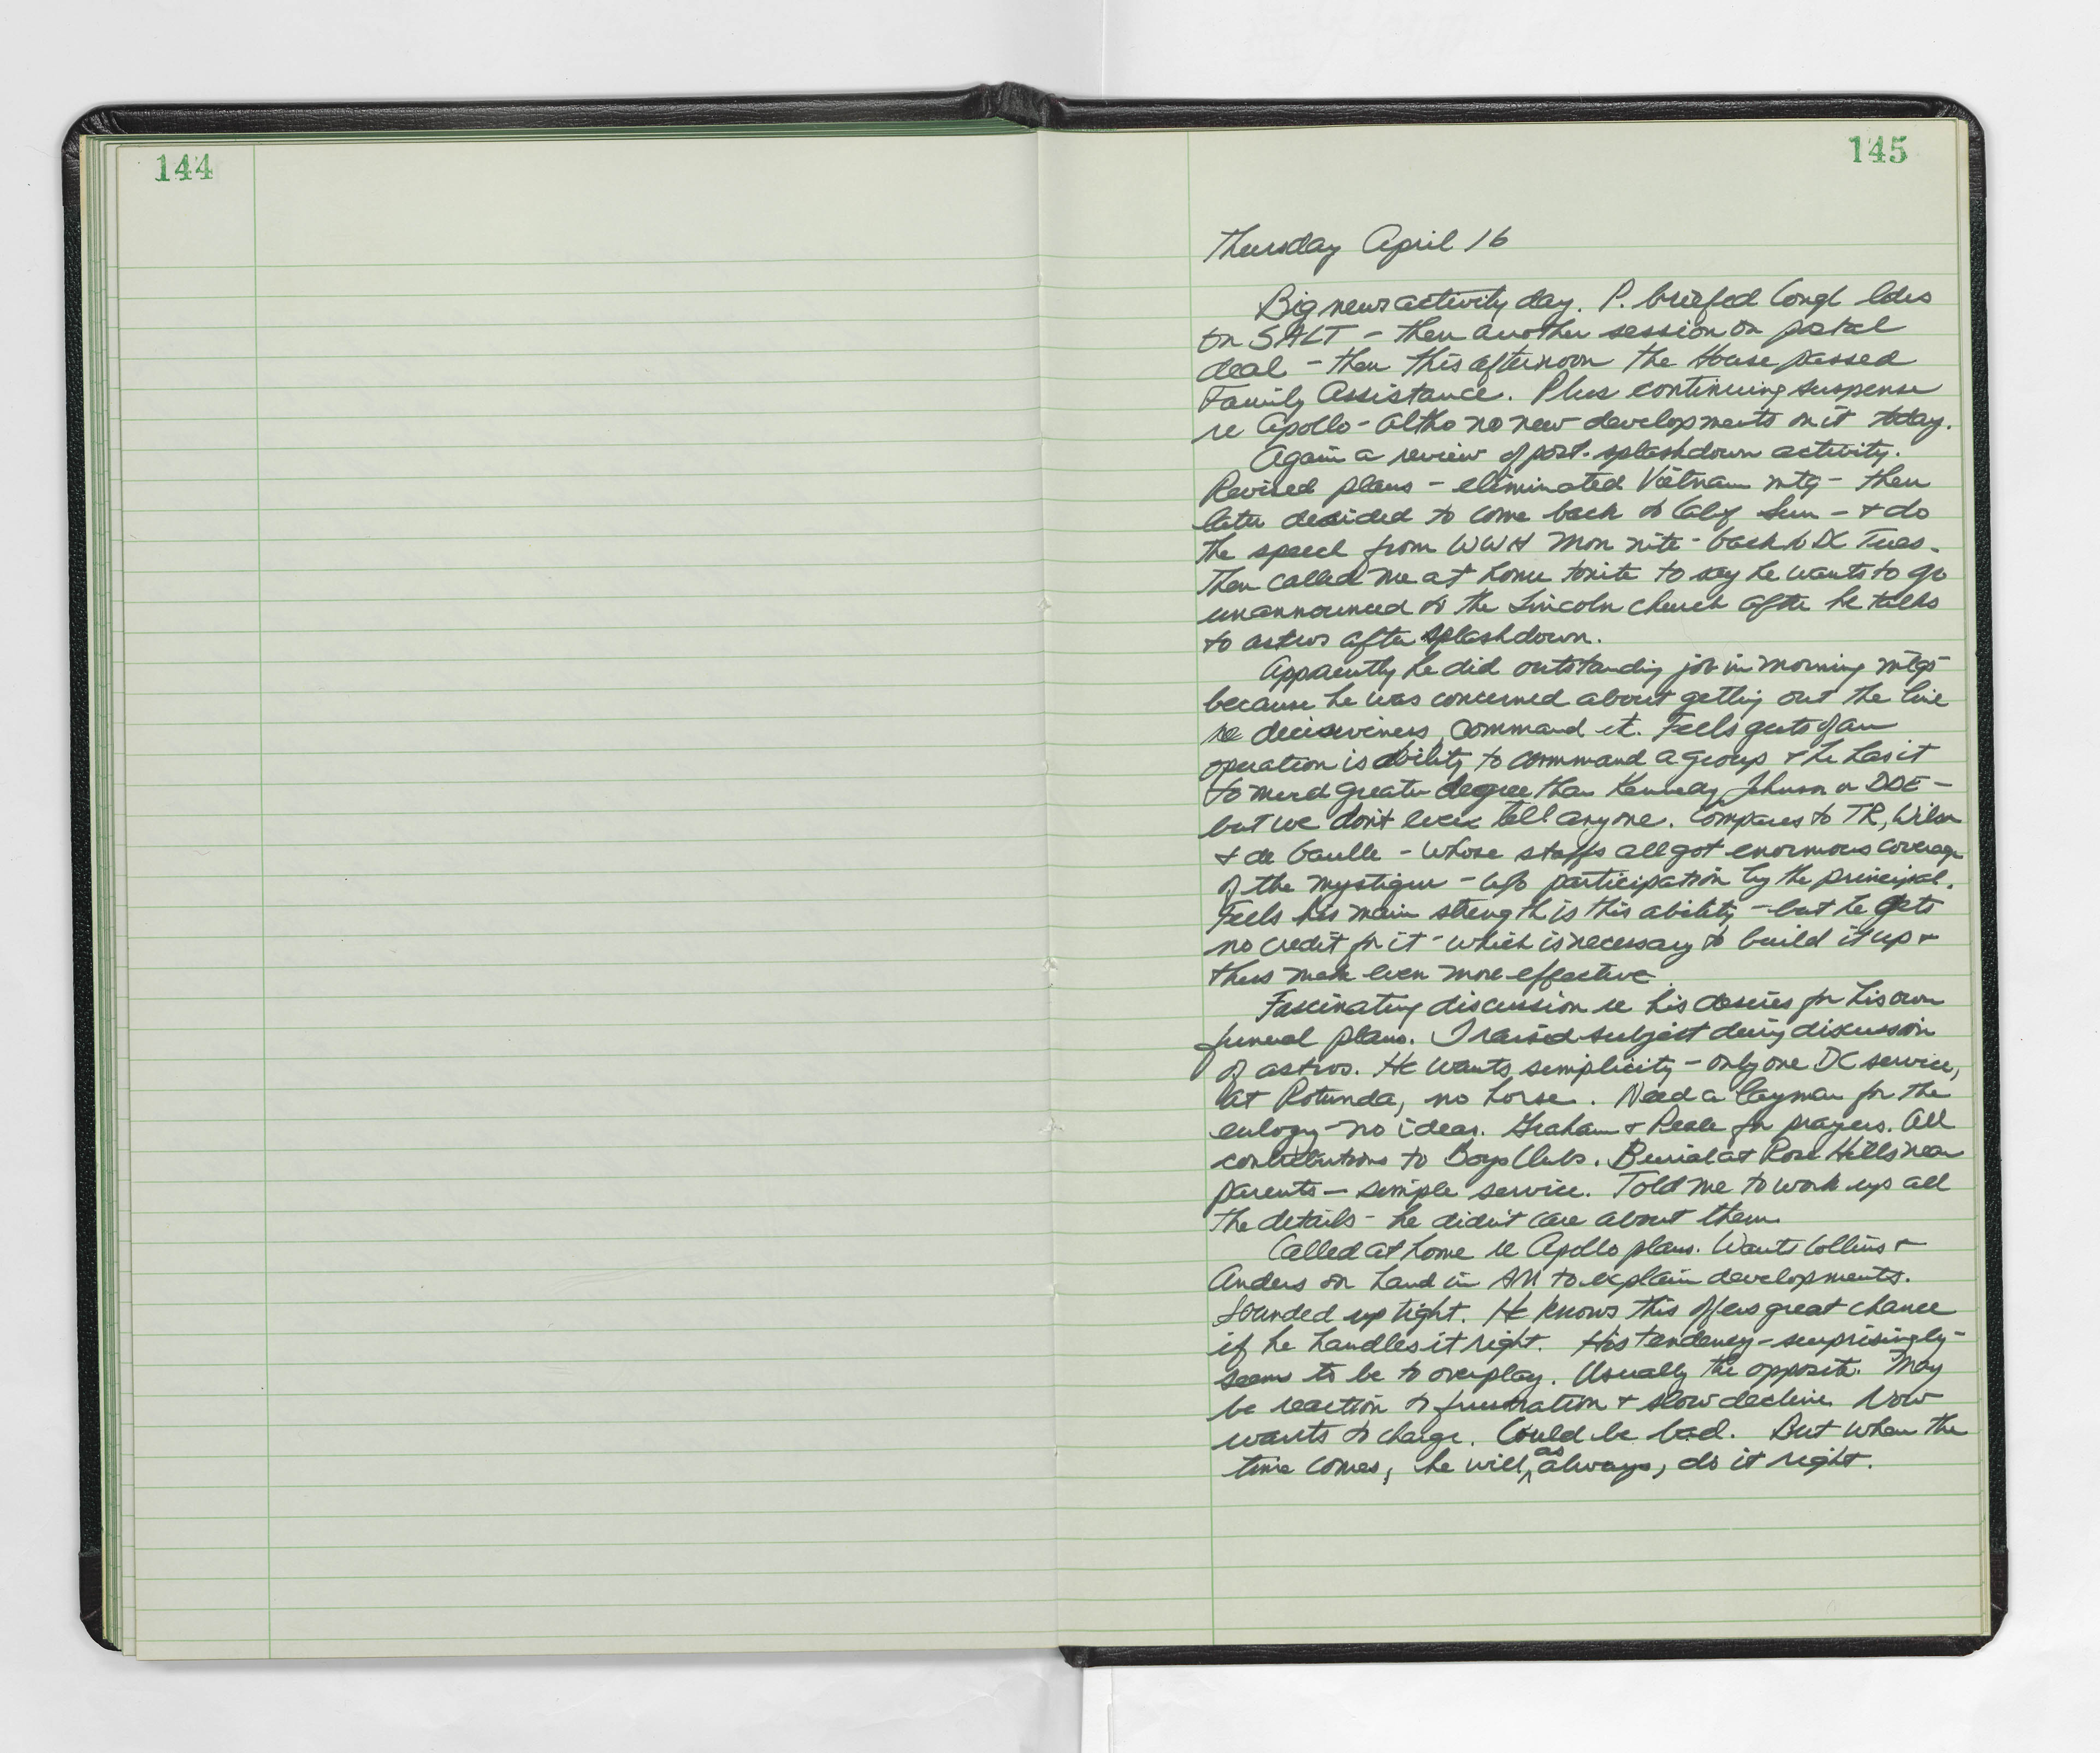 144
145
Thursday April 16
Big news activity day. P. briefed Congl ldrs
on SALT - then another session on postal
deal - then this afternoon the House passed
Family Assistance. Plus continuing suspense
re Apollo - altho no new developments on it today.
Again a review of post-splashdown activity.
Revised plans - eliminated Vietnam mtg - then
later decided to come back to Calif Sun - + do
the speech from WWH Mon nite - back to DC Tues.
Then called me at home tonite to say he wants to go
unannounced to the Lincoln church after he talks
to astros after splashdown.
Apparently he did outstanding job in morning mtgs
because he was concerned about getting out the line
re decisiveness, command et. Feels guts of an
operation is ability to command a group + he has it
to much greater degree than Kennedy Johnson or DDE -
but we don't ever tell anyone. Compares to TR, Wilson
+ de Gaulle - whose staffs all got enormous coverage
of the mystique - w/o participation by the principal.
Feels his main strength is this ability - but he gets
no credit for it - which is necessary to build it up +
thus make even more effective.
Fascinating discussion re his desires for his own
funeral plans. I raised subject during discussion
of astros. He wants simplicity - only one DC service,
at Rotunda, no horse. Need a layman for the
eulogy - no ideas. Graham + Peale for prayers. All
contributions to Boys Clubs. Burial at Rose Hills near
parents - simple service. Told me to work up all
the details - he didn't care about them.
Called at home re Apollo plans. Wants Collins +
Anders on hand in AM to explain developments.
Sounded up tight. He knows this offers great chance
if he handles it right. His tendency - surprisingly -
seems to be to overplay. Usually the opposite. May
be reaction to frustration + slow decline. Now
wants to charge. Could be bad. But when the
time comes, he will, as always, do it right.